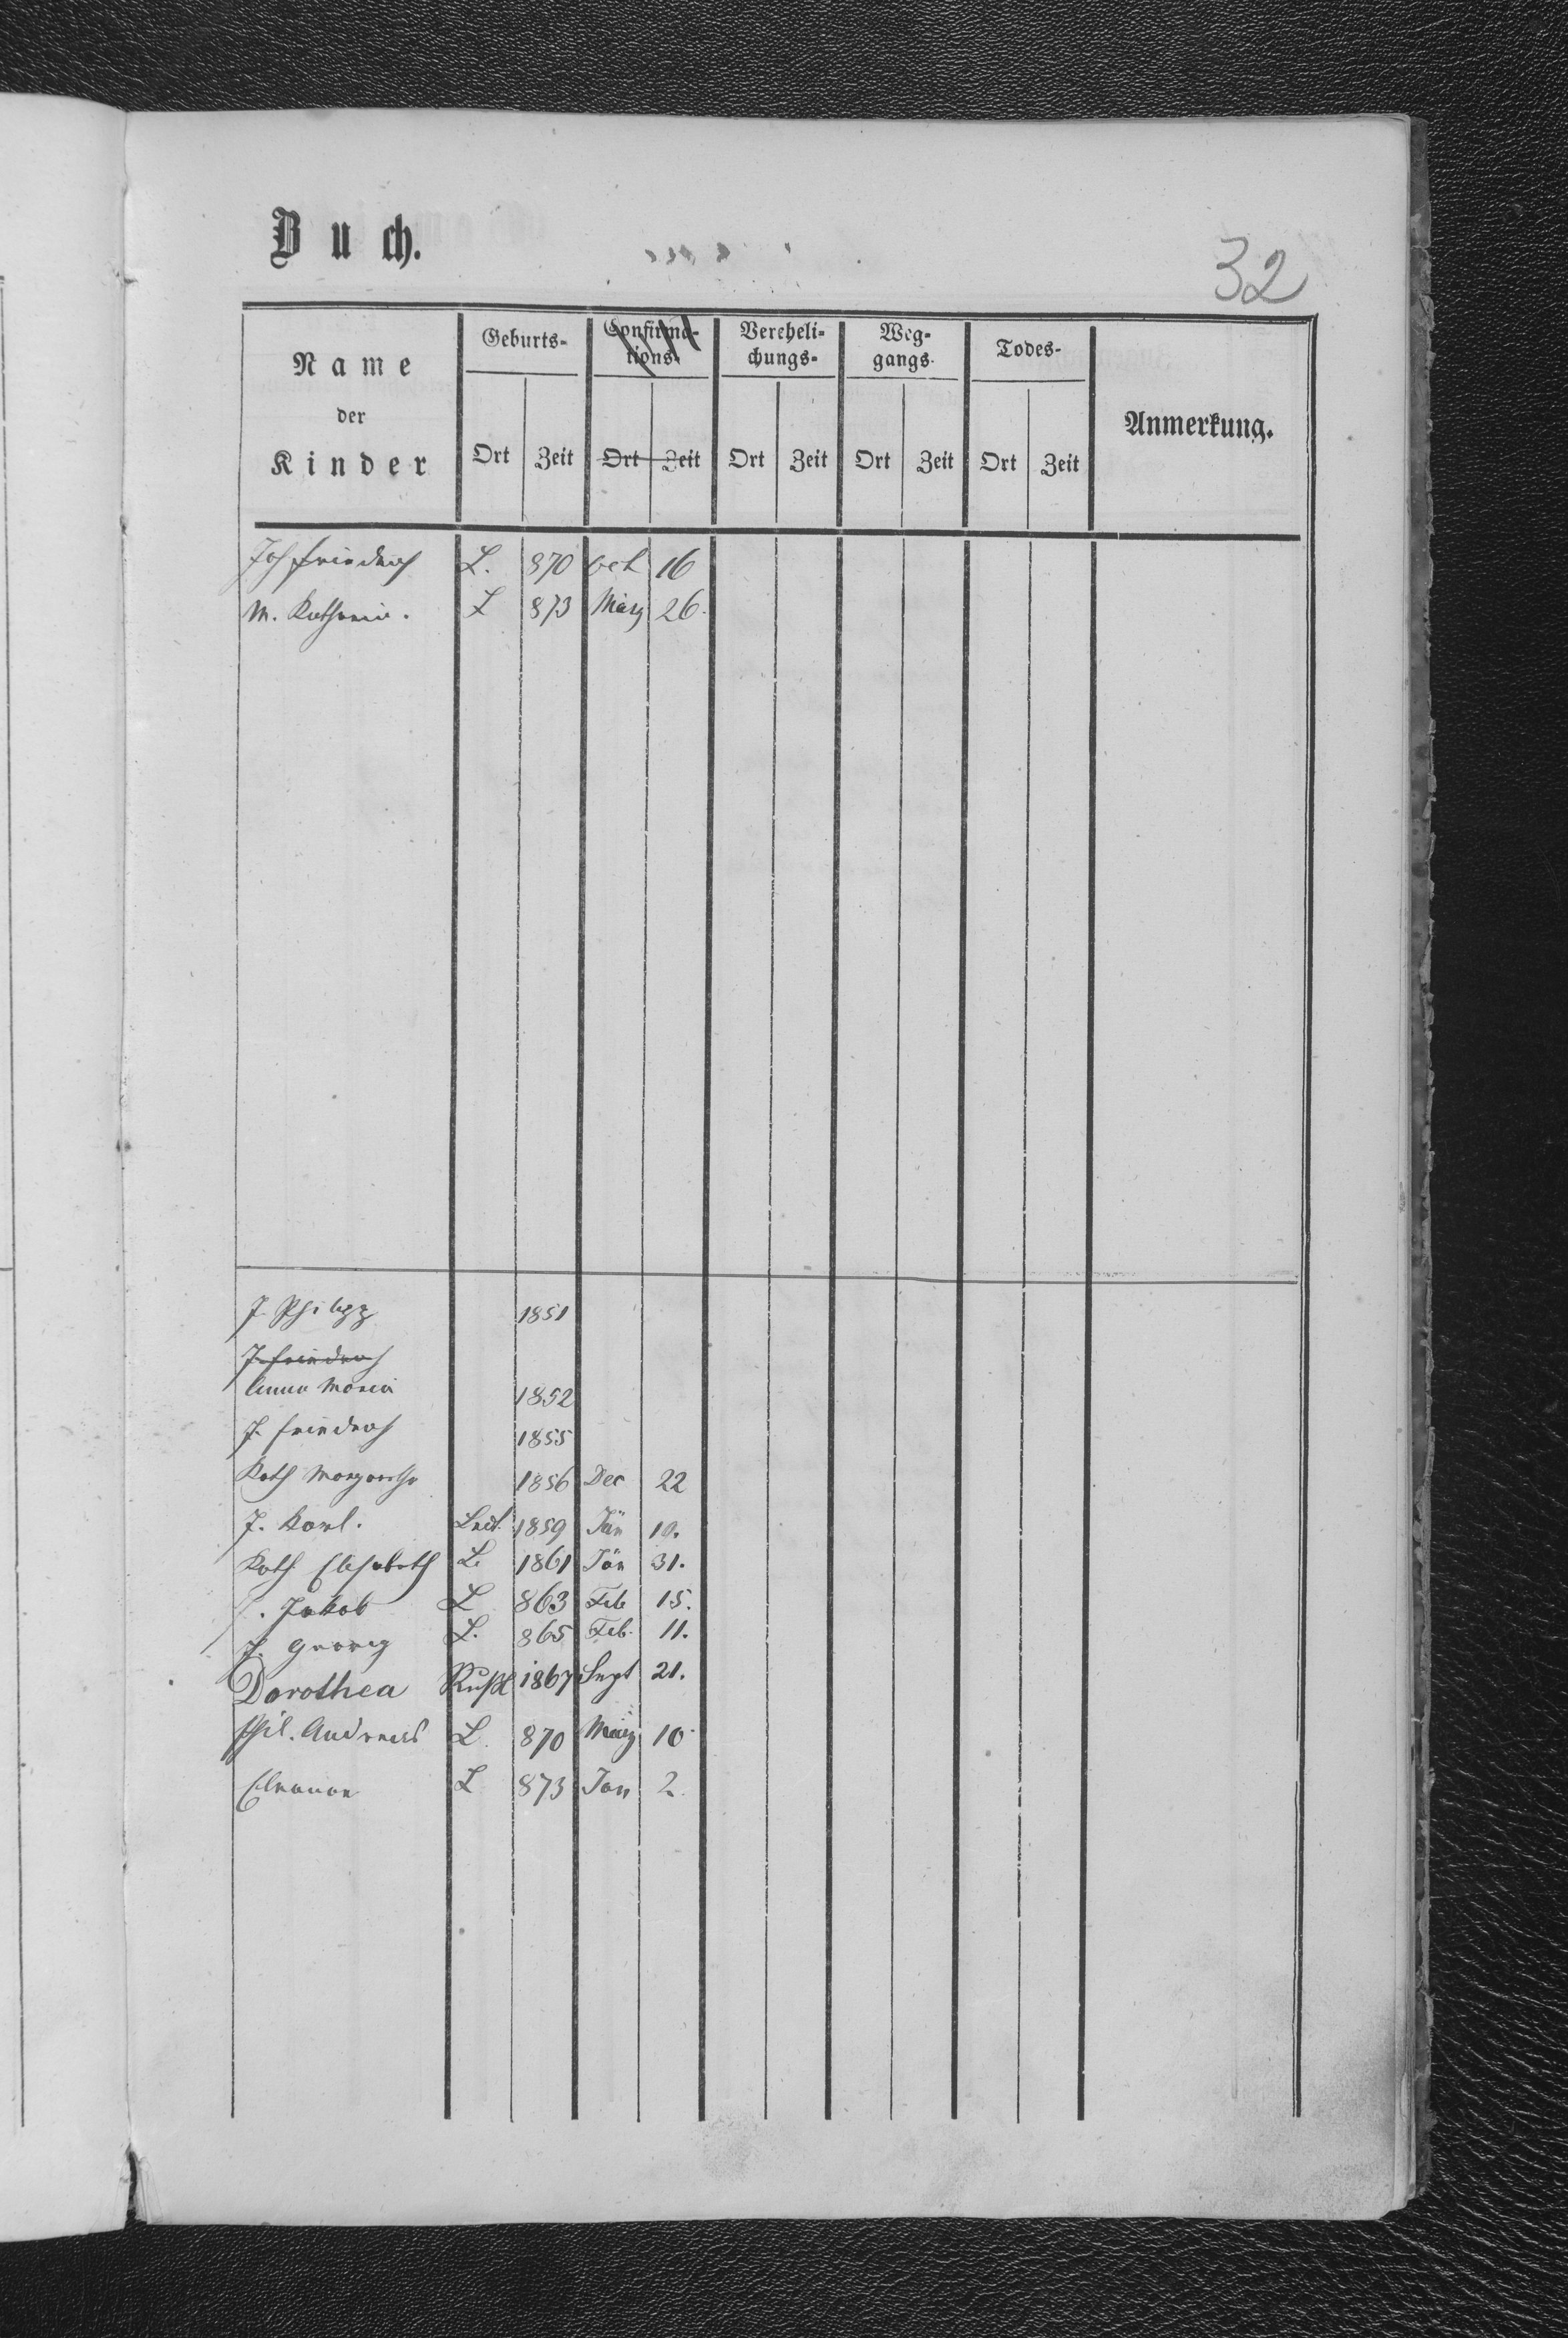 Buch.
32
Name der Kinder
Geburts- Ort Zeit
Confirma-tions- Ort Zeit
Vereheli-chungs- Ort Zeit
Weg-gangs- Ort Zeit
Todes- Ort Zeit
Anmerkung.
Joh Friedrich L. 870 Oct 16
M. Katharin. L 873 März 26.
J. Philipp 1851
J. Friedrich
Anna Maria 1852
J. Friedrich 1855
Kath Margaretha 1856 Dec 22
J. Karl. 1859 Jän 10.
Kath Elisabeth L. 1861 Jän 31.
J. Jakob L 863 Feb 15.
J. Georg L. 865 Feb. 11.
Dorothea Rußl 1867 Sept 21.
Phil. Andreas L. 870 März 10
Eleanor L 873 Jan 2.